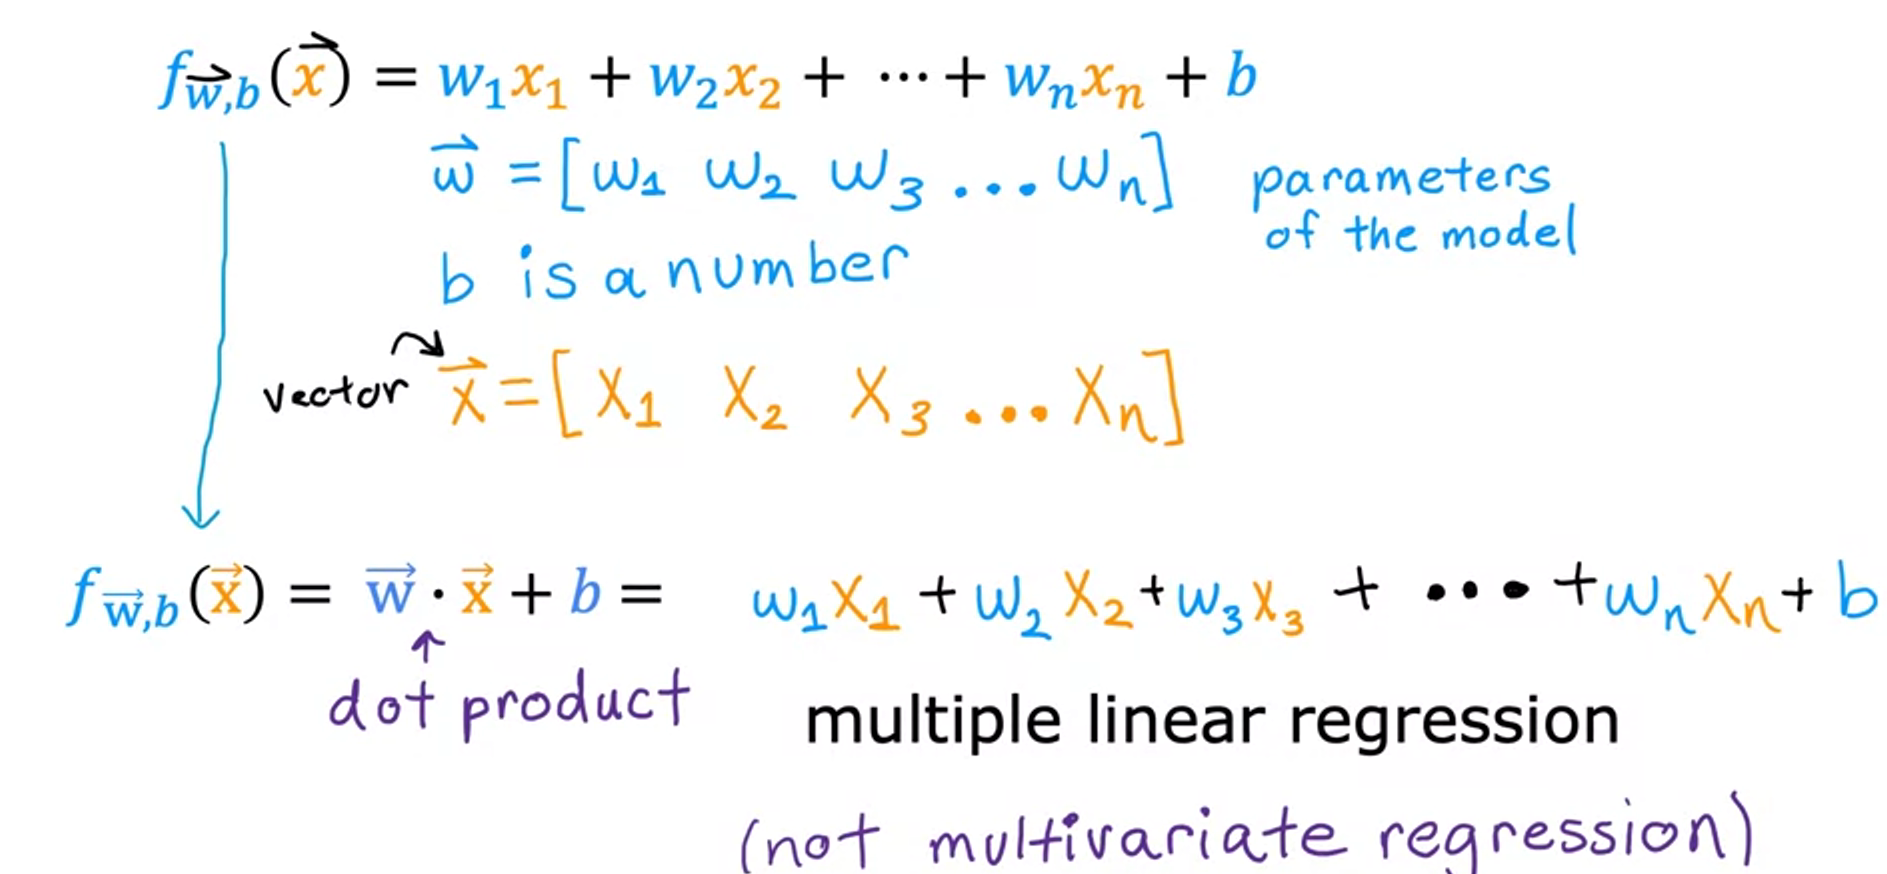 f w⃗,b (x⃗) = w₁x₁ + w₂x₂ + ⋯ + wₙxₙ + b
w⃗ = [w₁ w₂ w₃ ... wₙ]
parameters
of the model
b is a number
vector x⃗ = [x₁ x₂ x₃ ... xₙ]
f w⃗,b (x⃗) = w⃗ · x⃗ + b = w₁x₁ + w₂x₂ + w₃x₃ + ... + wₙxₙ + b
dot product
multiple linear regression
(not multivariate regression)